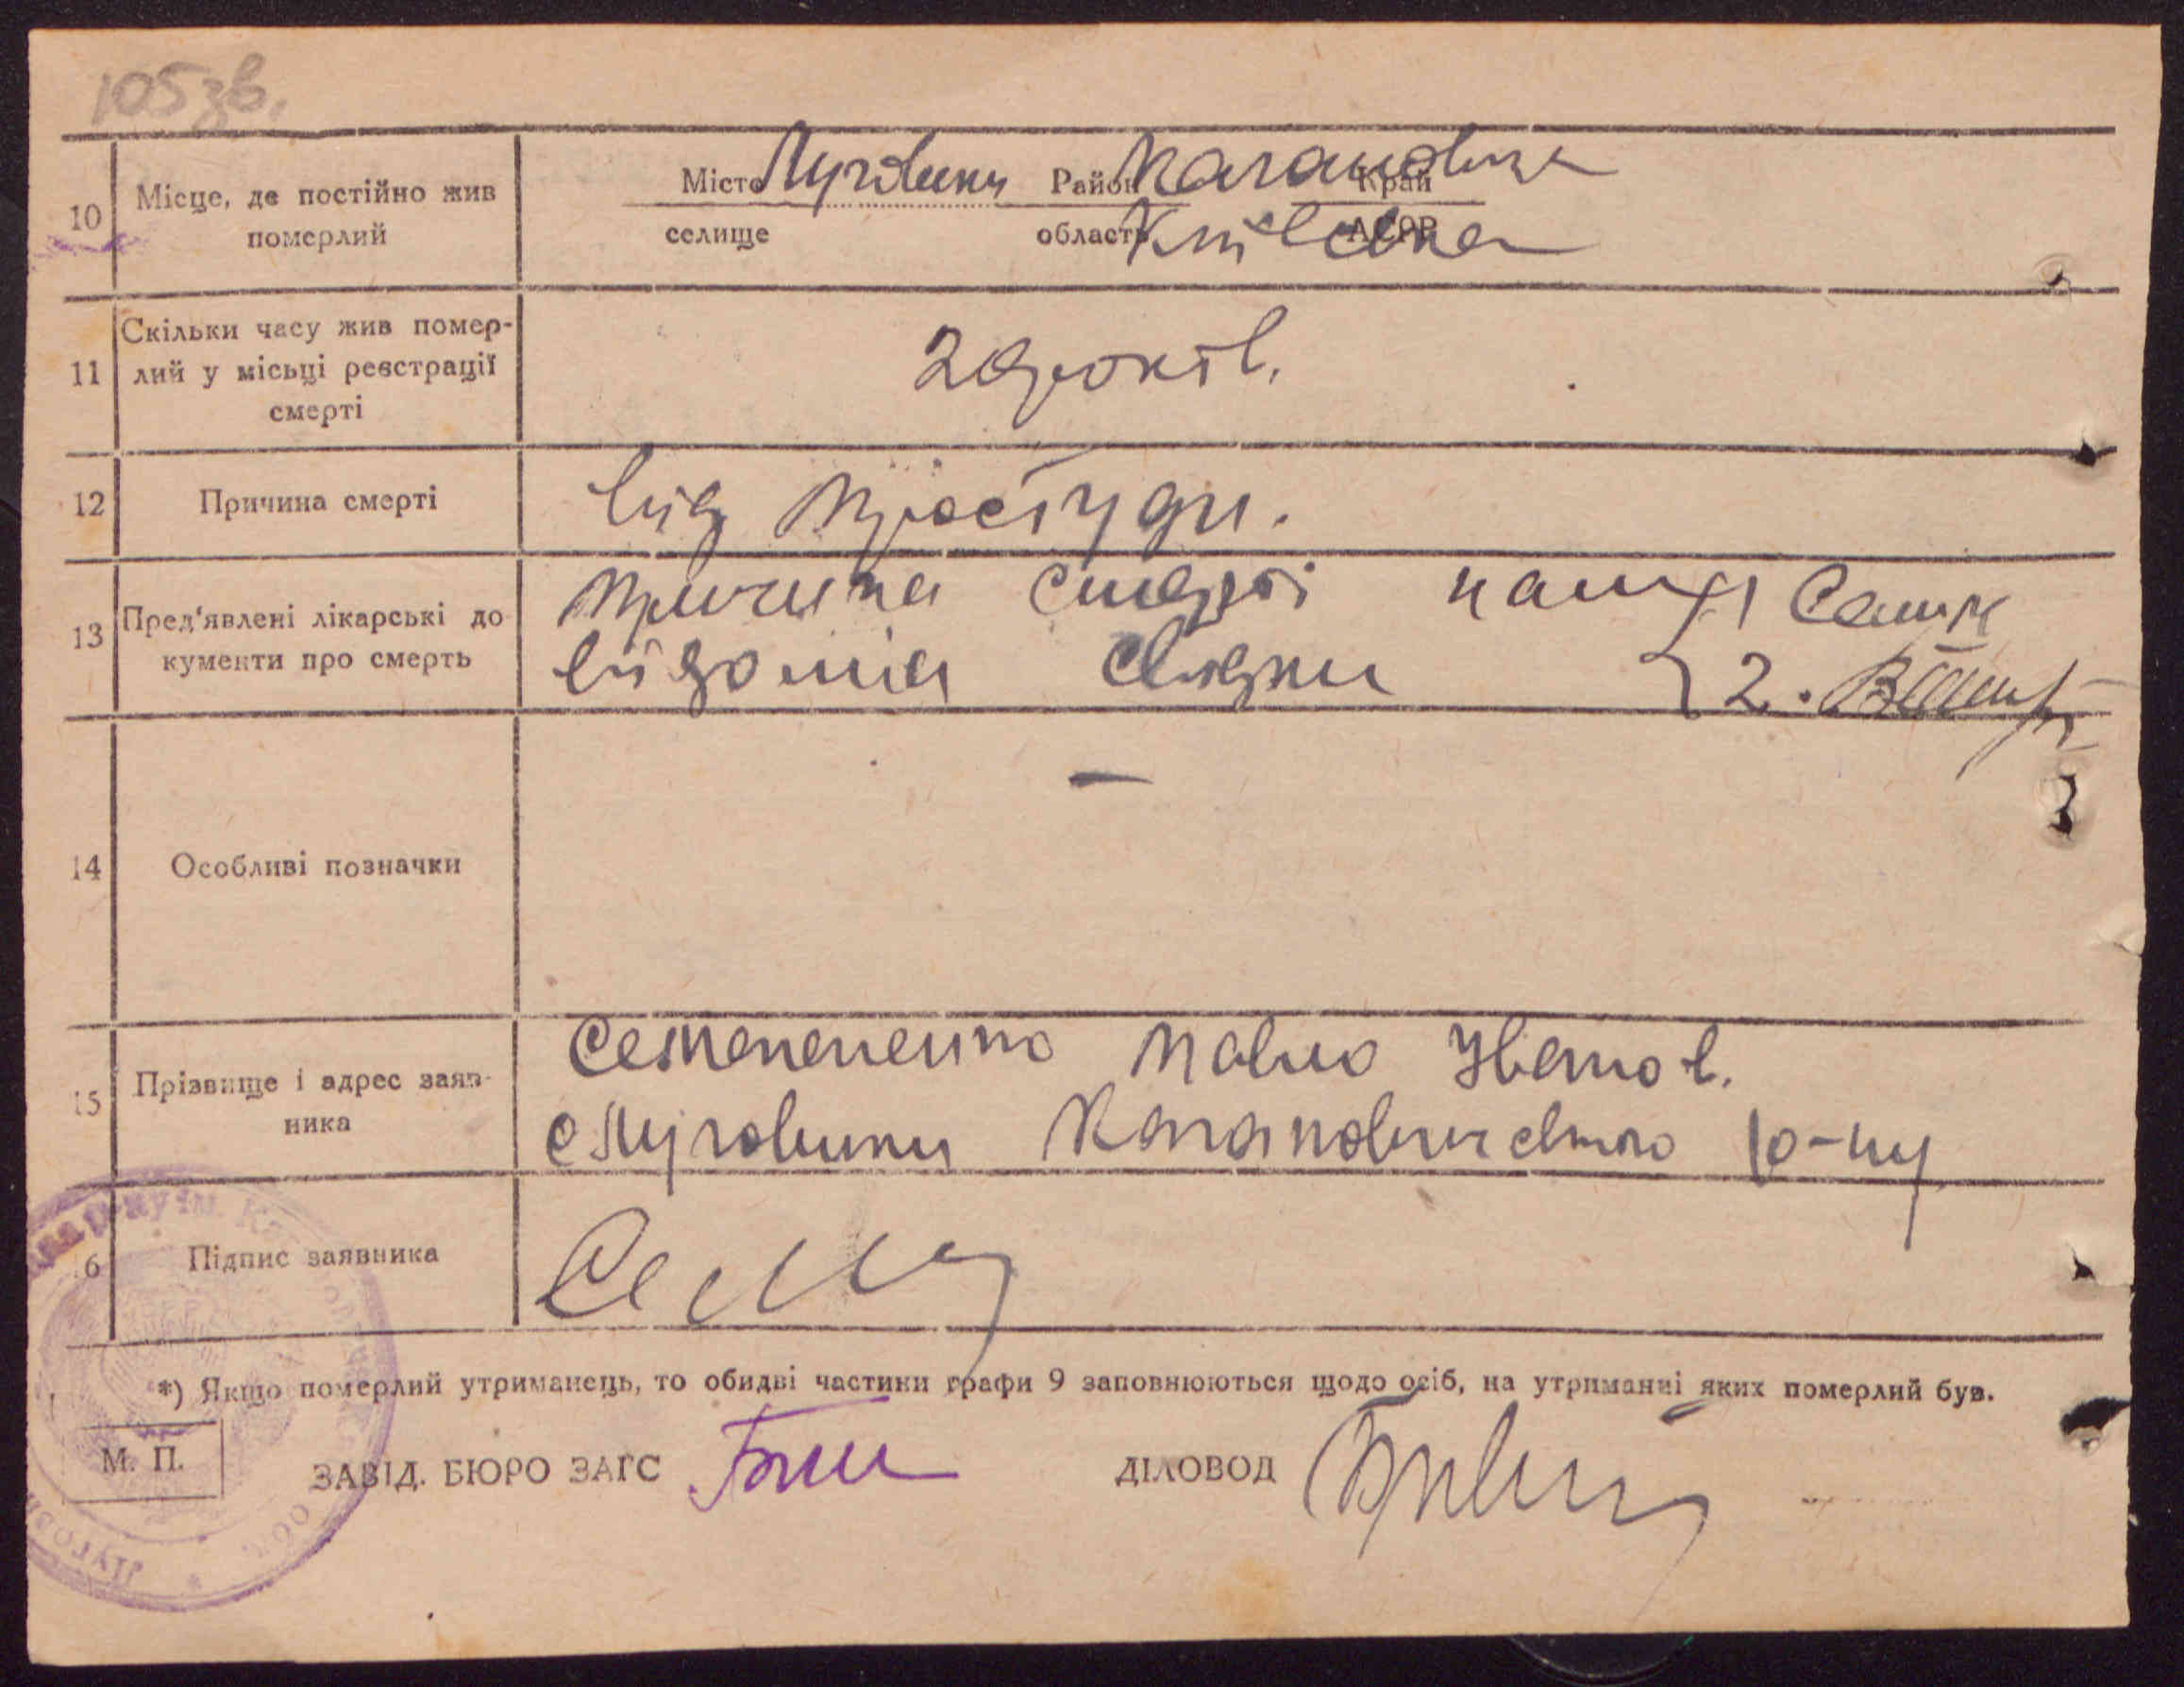 105 зв.
10 Місце, де постійно жив померлий
Місто Луговики Район Кагановичк Край
селище область Київська АСРР
11 Скільки часу жив помер-
лий у місьці реєстрації
смерті
років.
12 Причина смерті від простуди.
13 Пред'явлені лікарські до
кументи про смерть
причина смерті
відомія свідки 2.
14 Особливі позначки —
15 Прізвище і адрес заяв-
ника
Павло Іванов.
с Луговики Кагановичського р-ну
16 Підпис заявника
*) Якщо померлий утриманець, то обидві частини графи 9 заповнюються щодо осіб, на утриманні яких померлий був.
М. П.
ЗАВІД. БЮРО ЗАГС ДІЛОВОД